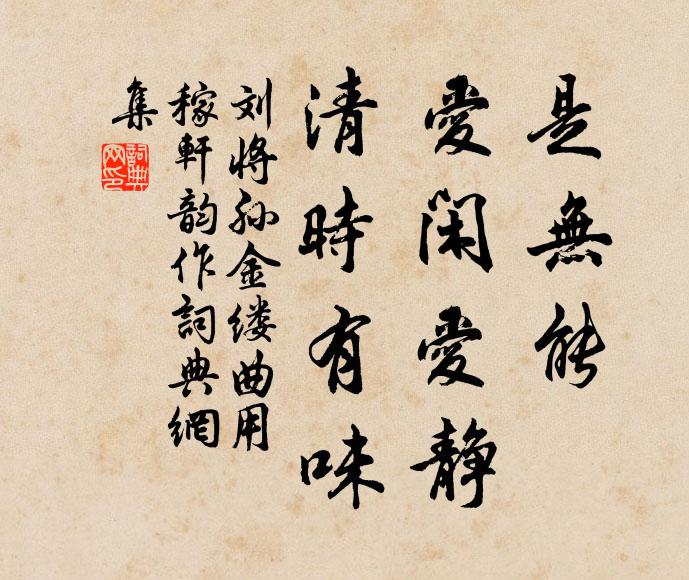 是無能
愛閑愛静
清時有味
刘將孙金缕曲用
稼軒韵作詞典網
集
詞典网印